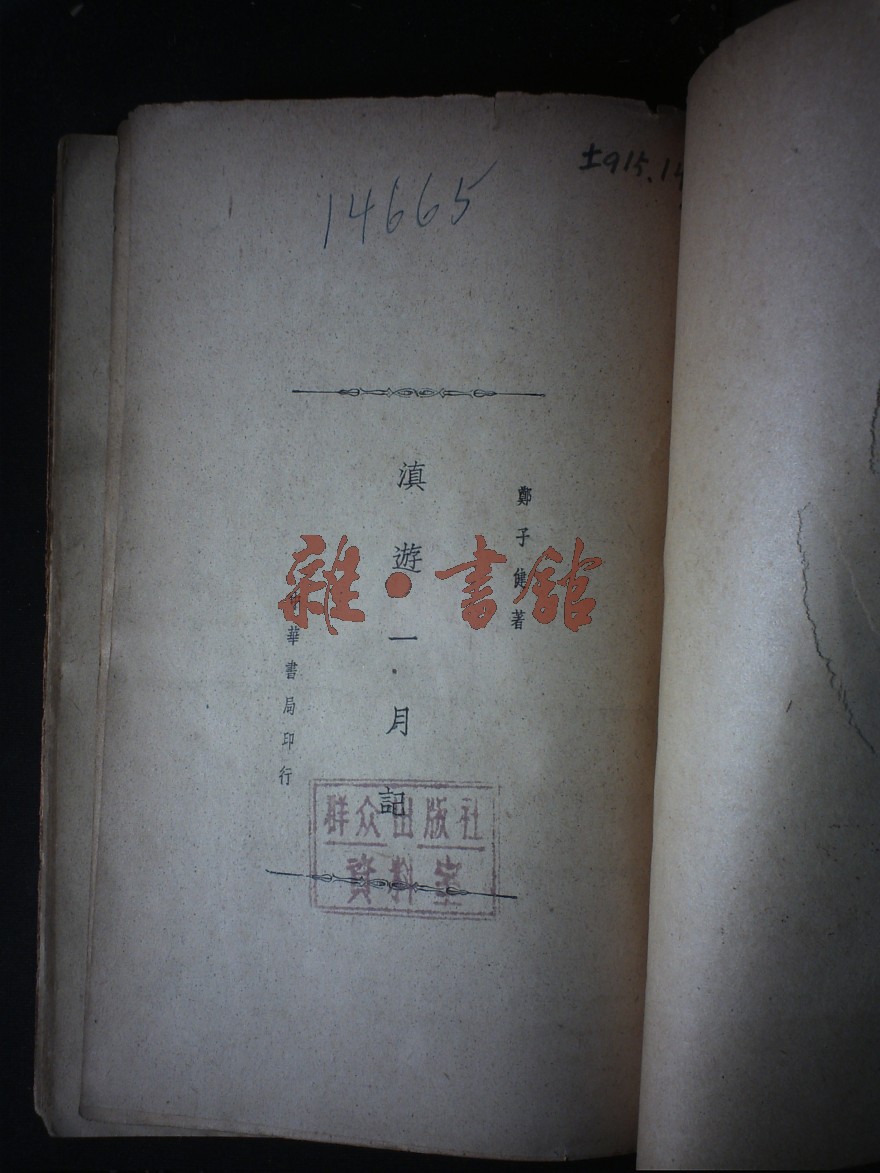 14665
土915.14
鄭子健著
滇遊一月記
中華書局印行
雜·書館
群众出版社
資料室